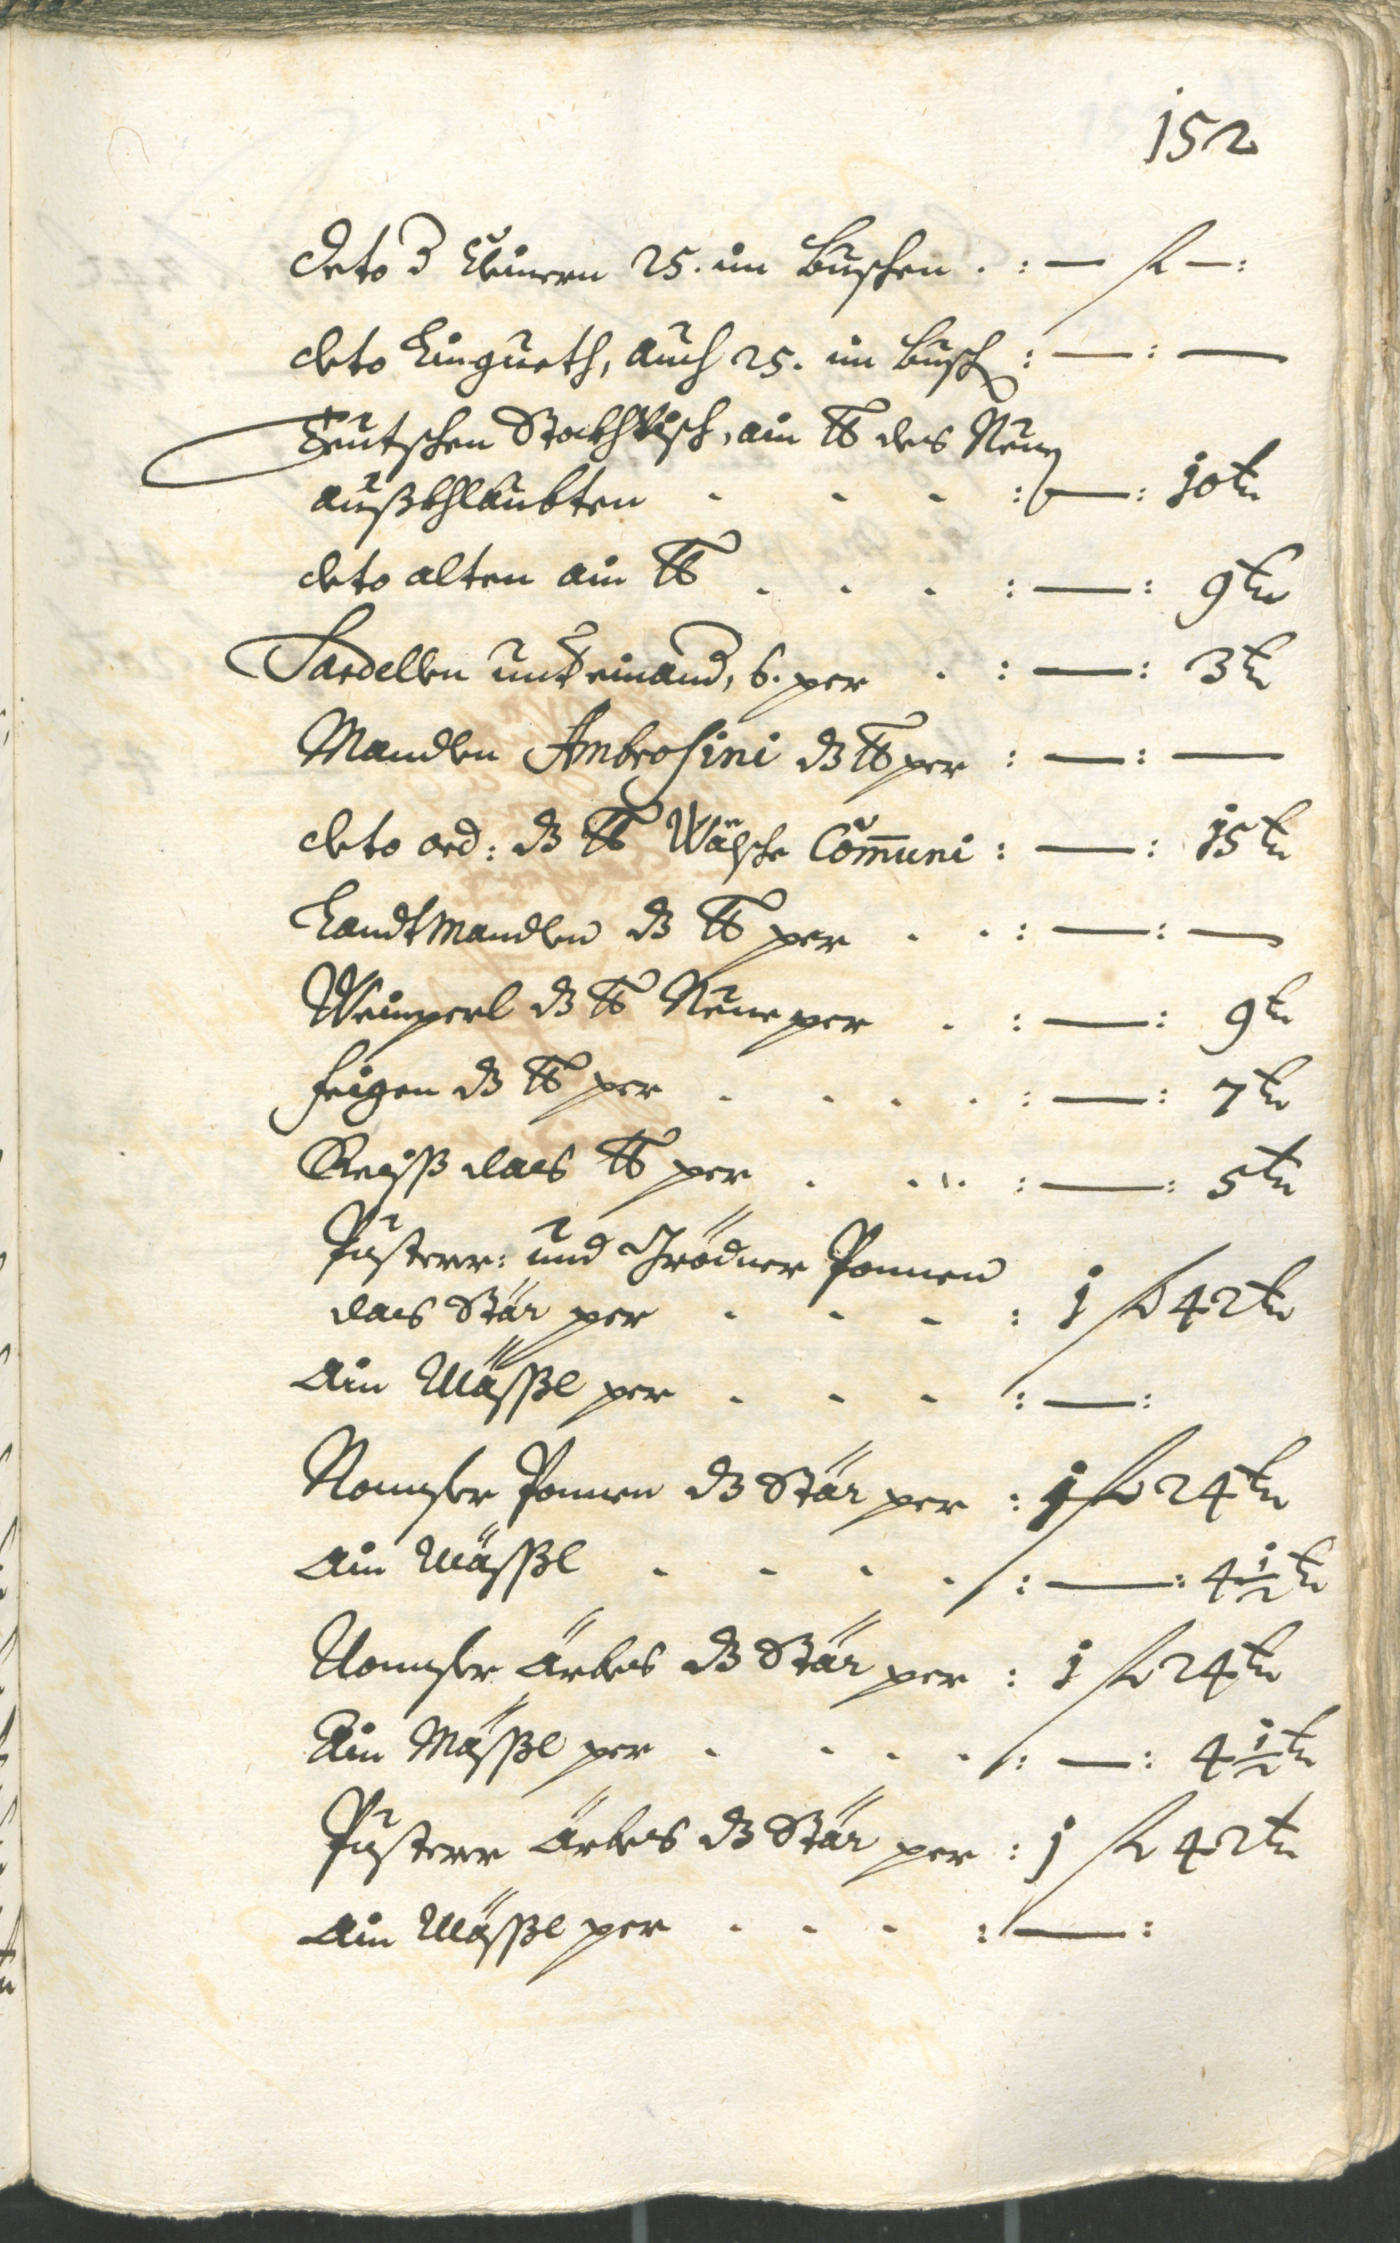 152
deto d Kleinern 25. im Buschen . : — f — :
deto Eingueth, auch 25. im Busch : — : —
Teutschen Stockhvisch, ain ℔ des Neuen
außkhlaubten - - - : — : 10 kr
deto alten ain ℔ . . . : — : 9 kr
Sardellen unteinand, 6. per . : — : 3 kr
Mandlen Ambrosini dz ℔ per : — : —
deto ord: dz ℔ Wälsche Com̄uni : — : 15 kr
Landt Mandlen dz ℔ per . . : — : —
Weinperl dz ℔ Neue per . : — : 9 kr
Feigen dz ℔ per . . . . : — : 7 kr
Reiß das ℔ per . . . : — : 5 kr
Pusterer: und Grödner Ponnen
das Stär per - - - : 1 f 42 kr
Ain Mässl per - - - : — :
Nonsper Ponnen dz Stär per : 1 f 24 kr
Ain Mässl - - - - : — : 4 1/2 kr
Nonsper Ärbes dz Stär per : 1 f 24 kr
Ain Mässl per - - - - : — : 4 1/2 kr
Pusterer Ärbes dz Stär per : 1 f 42 kr
Ain Mässl per - - - : — :